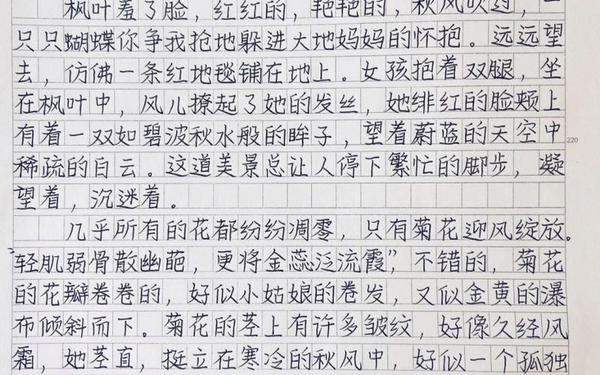 枫叶羞了脸，红红的，艳艳的，秋风吹过，一
只只蝴蝶你争我抢地躲进大地妈妈的怀抱。远远望
去，仿佛一条红地毯铺在地上。女孩抱着双腿，坐
在枫叶中，风儿撩起了她的发丝，她绯红的脸颊上
有着一双如碧波秋水般的眸子，望着蔚蓝的天空中
稀疏的白云。这道美景总让人停下繁忙的脚步，凝
望着，沉迷着。
几乎所有的花都纷纷凋零，只有菊花迎风绽放。
“轻肌弱骨散幽葩，更将金蕊泛流霞”，不错的，菊花
的花瓣卷卷的，好似小姑娘的卷发，又似金黄的瀑
布倾斜而下。菊花的茎上有许多皱纹，好像久经风
霜，她茎直，挺立在寒冷的秋风中，好似一个孤独
220